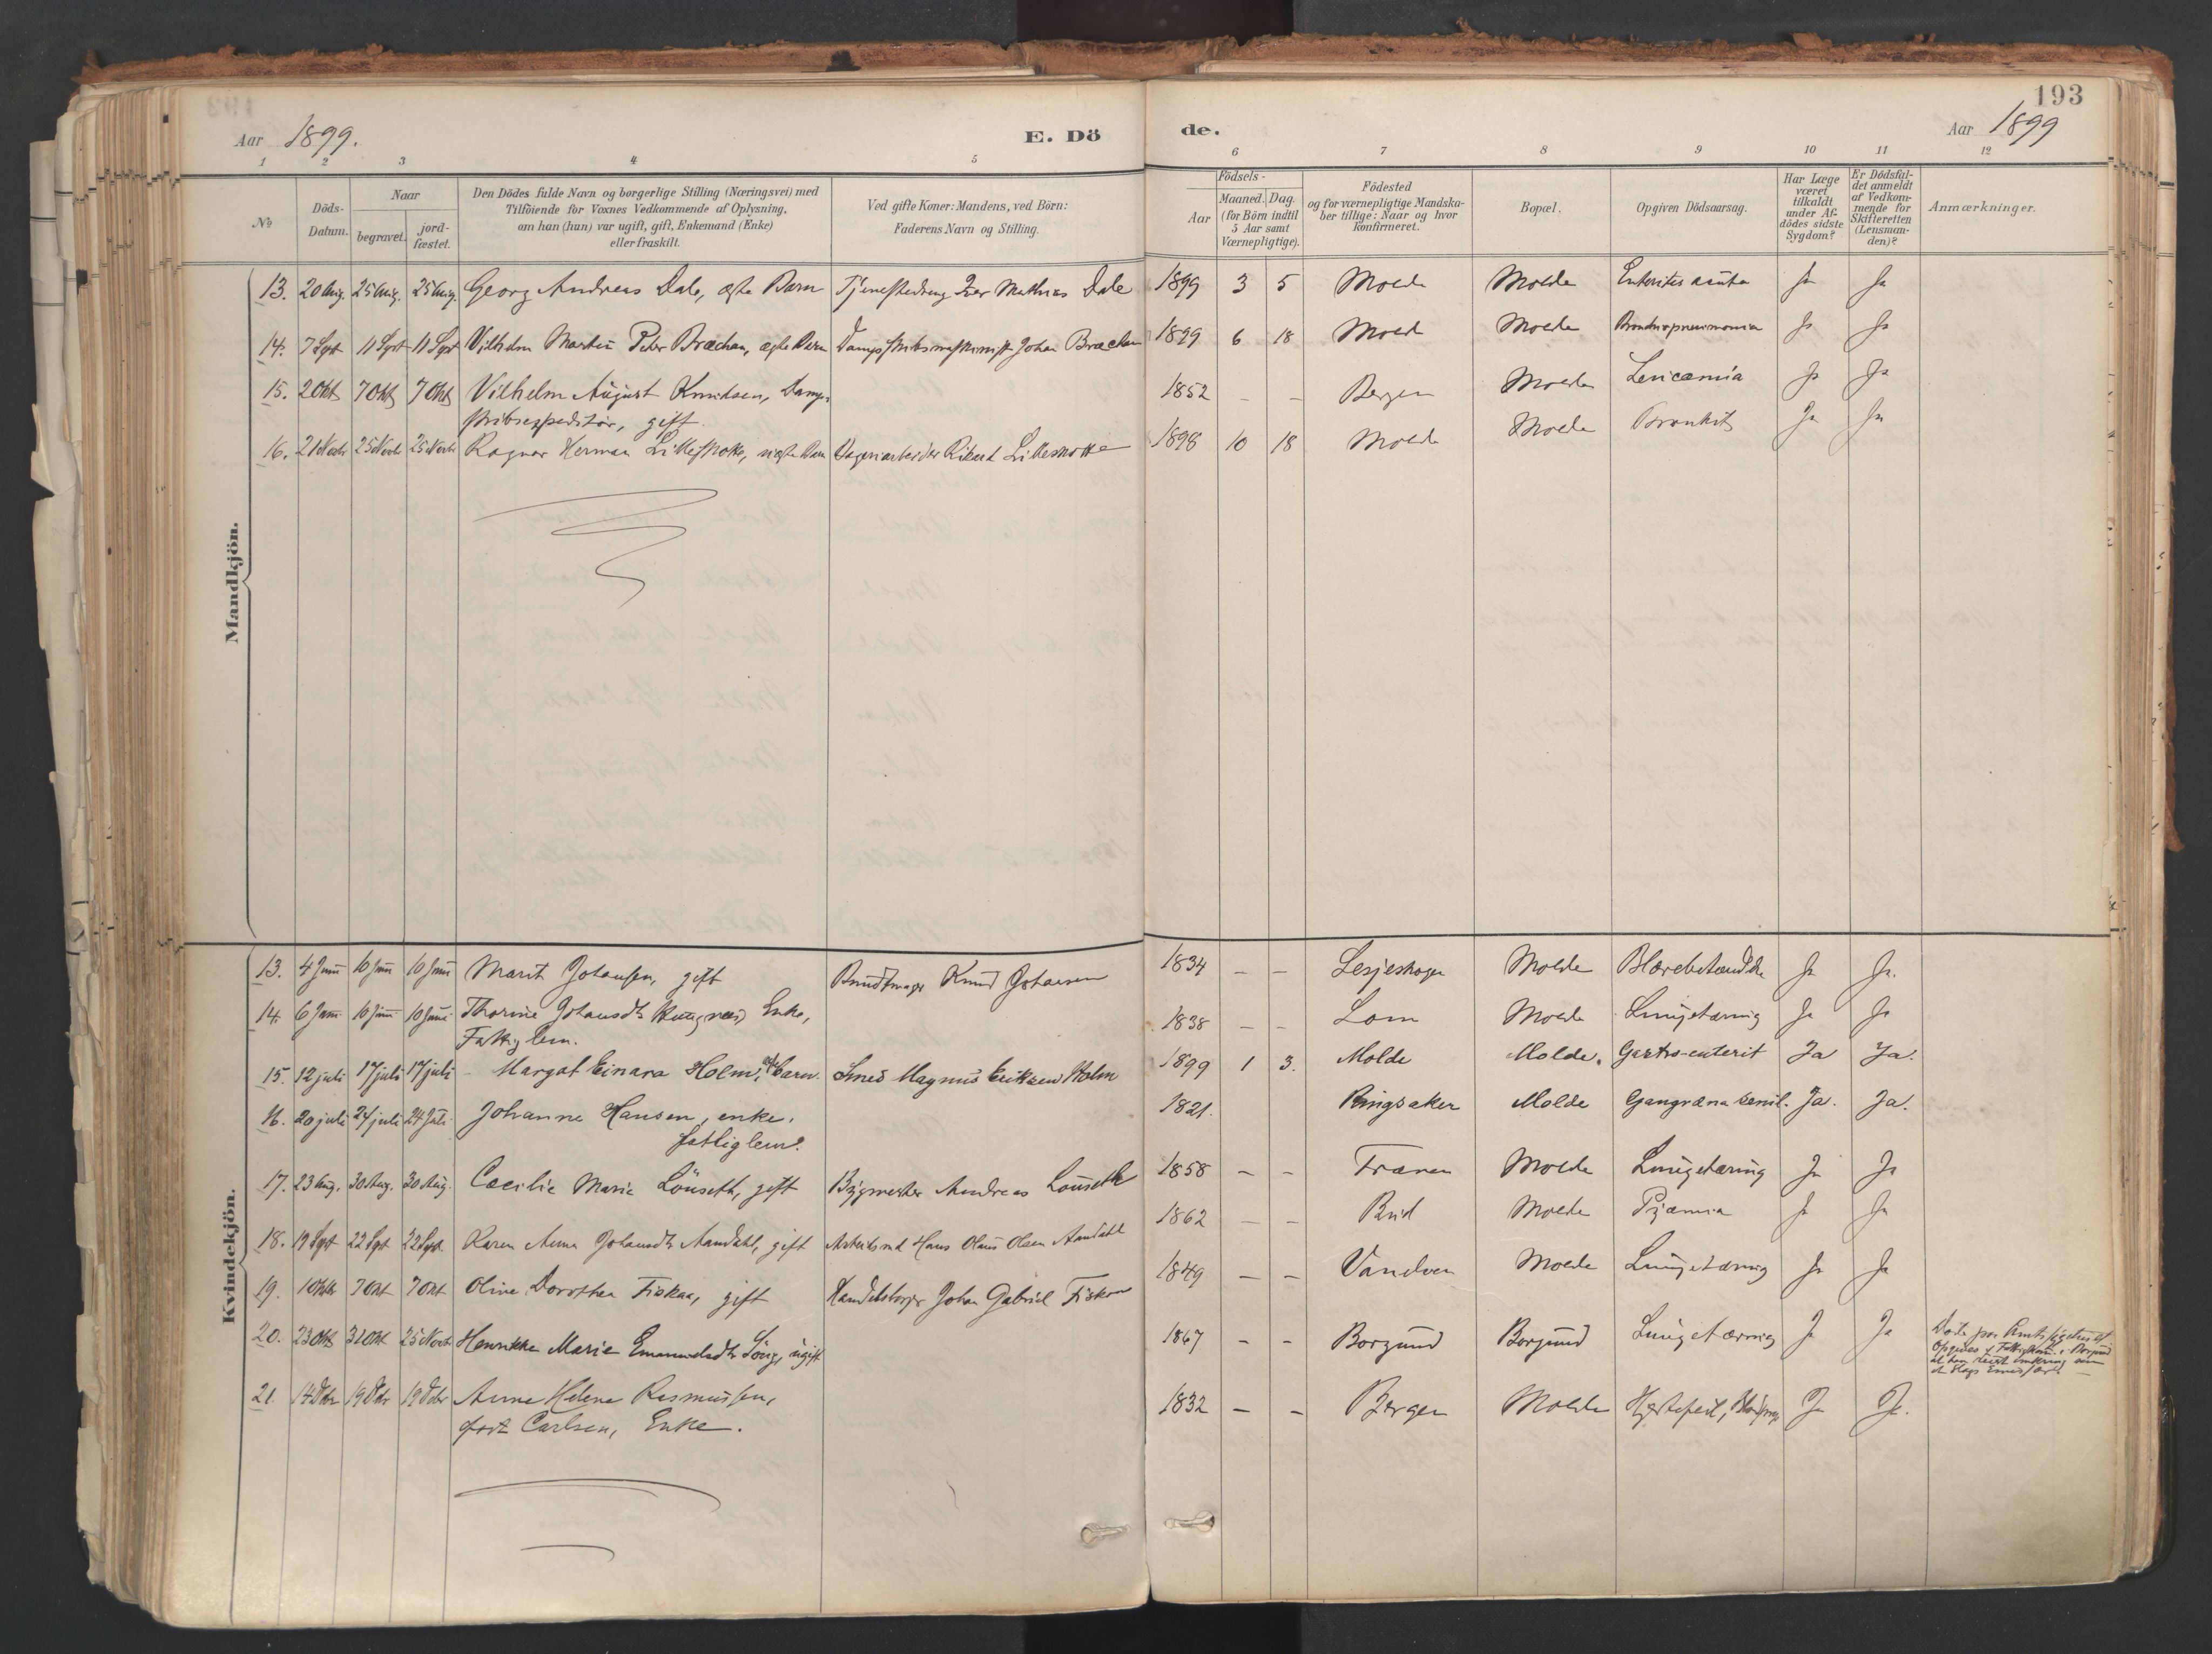 193
Aar 1899.
E. Dö
de.
Aar 1899
1 2 3 4 5 6 7 8 9 10 11 12
№
Döds-
Datum.
Naar
begravet.
jord-
fæstet.
Den Dödes fulde Navn og borgerlige Stilling (Næringsvei) med
Tilföiende for Voxnes Vedkommende af Oplysning,
om han (hun) var ugift, gift, Enkemand (Enke)
eller fraskilt.
Ved gifte Koner: Mandens, ved Börn:
Faderens Navn og Stilling.
Födsels-
Aar
Maaned. Dag.
(for Börn indtil
5 Aar samt
Værnepligtige).
Födested
og for værnepligtige Mandska-
ber tillige: Naar og hvor
konfirmeret.
Bopæl.
Opgiven Dödsaarsag.
Har Læge
været
tilkaldt
under Af-
dödes sidste
Sygdom?
Er Dödsfal-
det anmeldt
af Vedkom-
mende for
Skifteretten
(Lensman-
den)?
Anmærkninger.
Mandkjön.
13. 20 Aug. 25 Aug. 25 Aug. Georg Andreas Dale, ægte Barn Mathias Dale 1899 3 5 Molde Molde Enteritis acuta Ja Ja
14. 7 Sept 11 Sept 11 Sept Vilhelm Martin Peter Brachan, ægte Barn Johan Brachan 1899 6 18 Molde Molde Bronchopneumonia Ja Ja
15. 2 Okt 7 Okt 7 Okt Vilhelm August Knudsen, Damp-
skibsexpeditör, gift. 1852 - - Bergen Molde Leucæmia Ja Ja
16. 21 Novbr 25 Novbr 25 Novbr Ragnar Herman Lilleskotte, uægte Barn Rikard Lilleskotte 1898 10 18 Molde Molde Bronkit Ja Ja
Kvindekjön.
13. 4 Juni 10 Juni 10 Juni Marit Johansen, gift Knud Johansen 1834 - - Lesjeskogen Molde Ja Ja.
14. 6 Juni 10 Juni 10 Juni Thorine Johansdtr Enke,
Fattiglem. 1838 - - Lom Molde Lungetæring Ja Ja
15. 12 juli 17 juli 17 juli Margat Einara Holm, ægte barn. Smed Magnus Eriksen Holm 1899 1 3. Molde Molde. Gastro-enterit Ja Ja.
16. 20 juli 24 juli 24 Juli. Johanne Hansen, enke.
fattiglem. 1821. Ringsaker Molde Gangræna senil. Ja. Ja.
17. 23 Aug. 30 Aug. 30 Aug. Caecilie Marie Lönseth, gift Bygmester Andreas Lönseth 1858 - - Frænen Molde Lungetæring Ja Ja
18. 19 Sept 22 Sept 22 Sept. Karen Anna Johansdtr Aandahl, gift Arbeidsmd Hans Olaus Olsen Aandahl 1862 - - Bud Molde Pyæmia Ja Ja
19. 1 Oktbr 7 Okt 7 Okt Oline Dorothea Fiskaa, gift Handelsborger Johan Gabriel Fiskaa 1849 - - Vanelven Molde Lungetæring Ja Ja
20. 23 Okt 31 Okt 25 Novbr Henrikke Marie Emanuelsdtr ugift 1867 - - Borgund Borgund Lungetæring Ja Ja Döde paa Amtssygehuset
21. 14 Debr 19 Debr 19 Debr Anne Helene Rasmussen,
födt Carlsen, Enke. 1832 - - Bergen Molde Hjertefeil, Ja Ja.